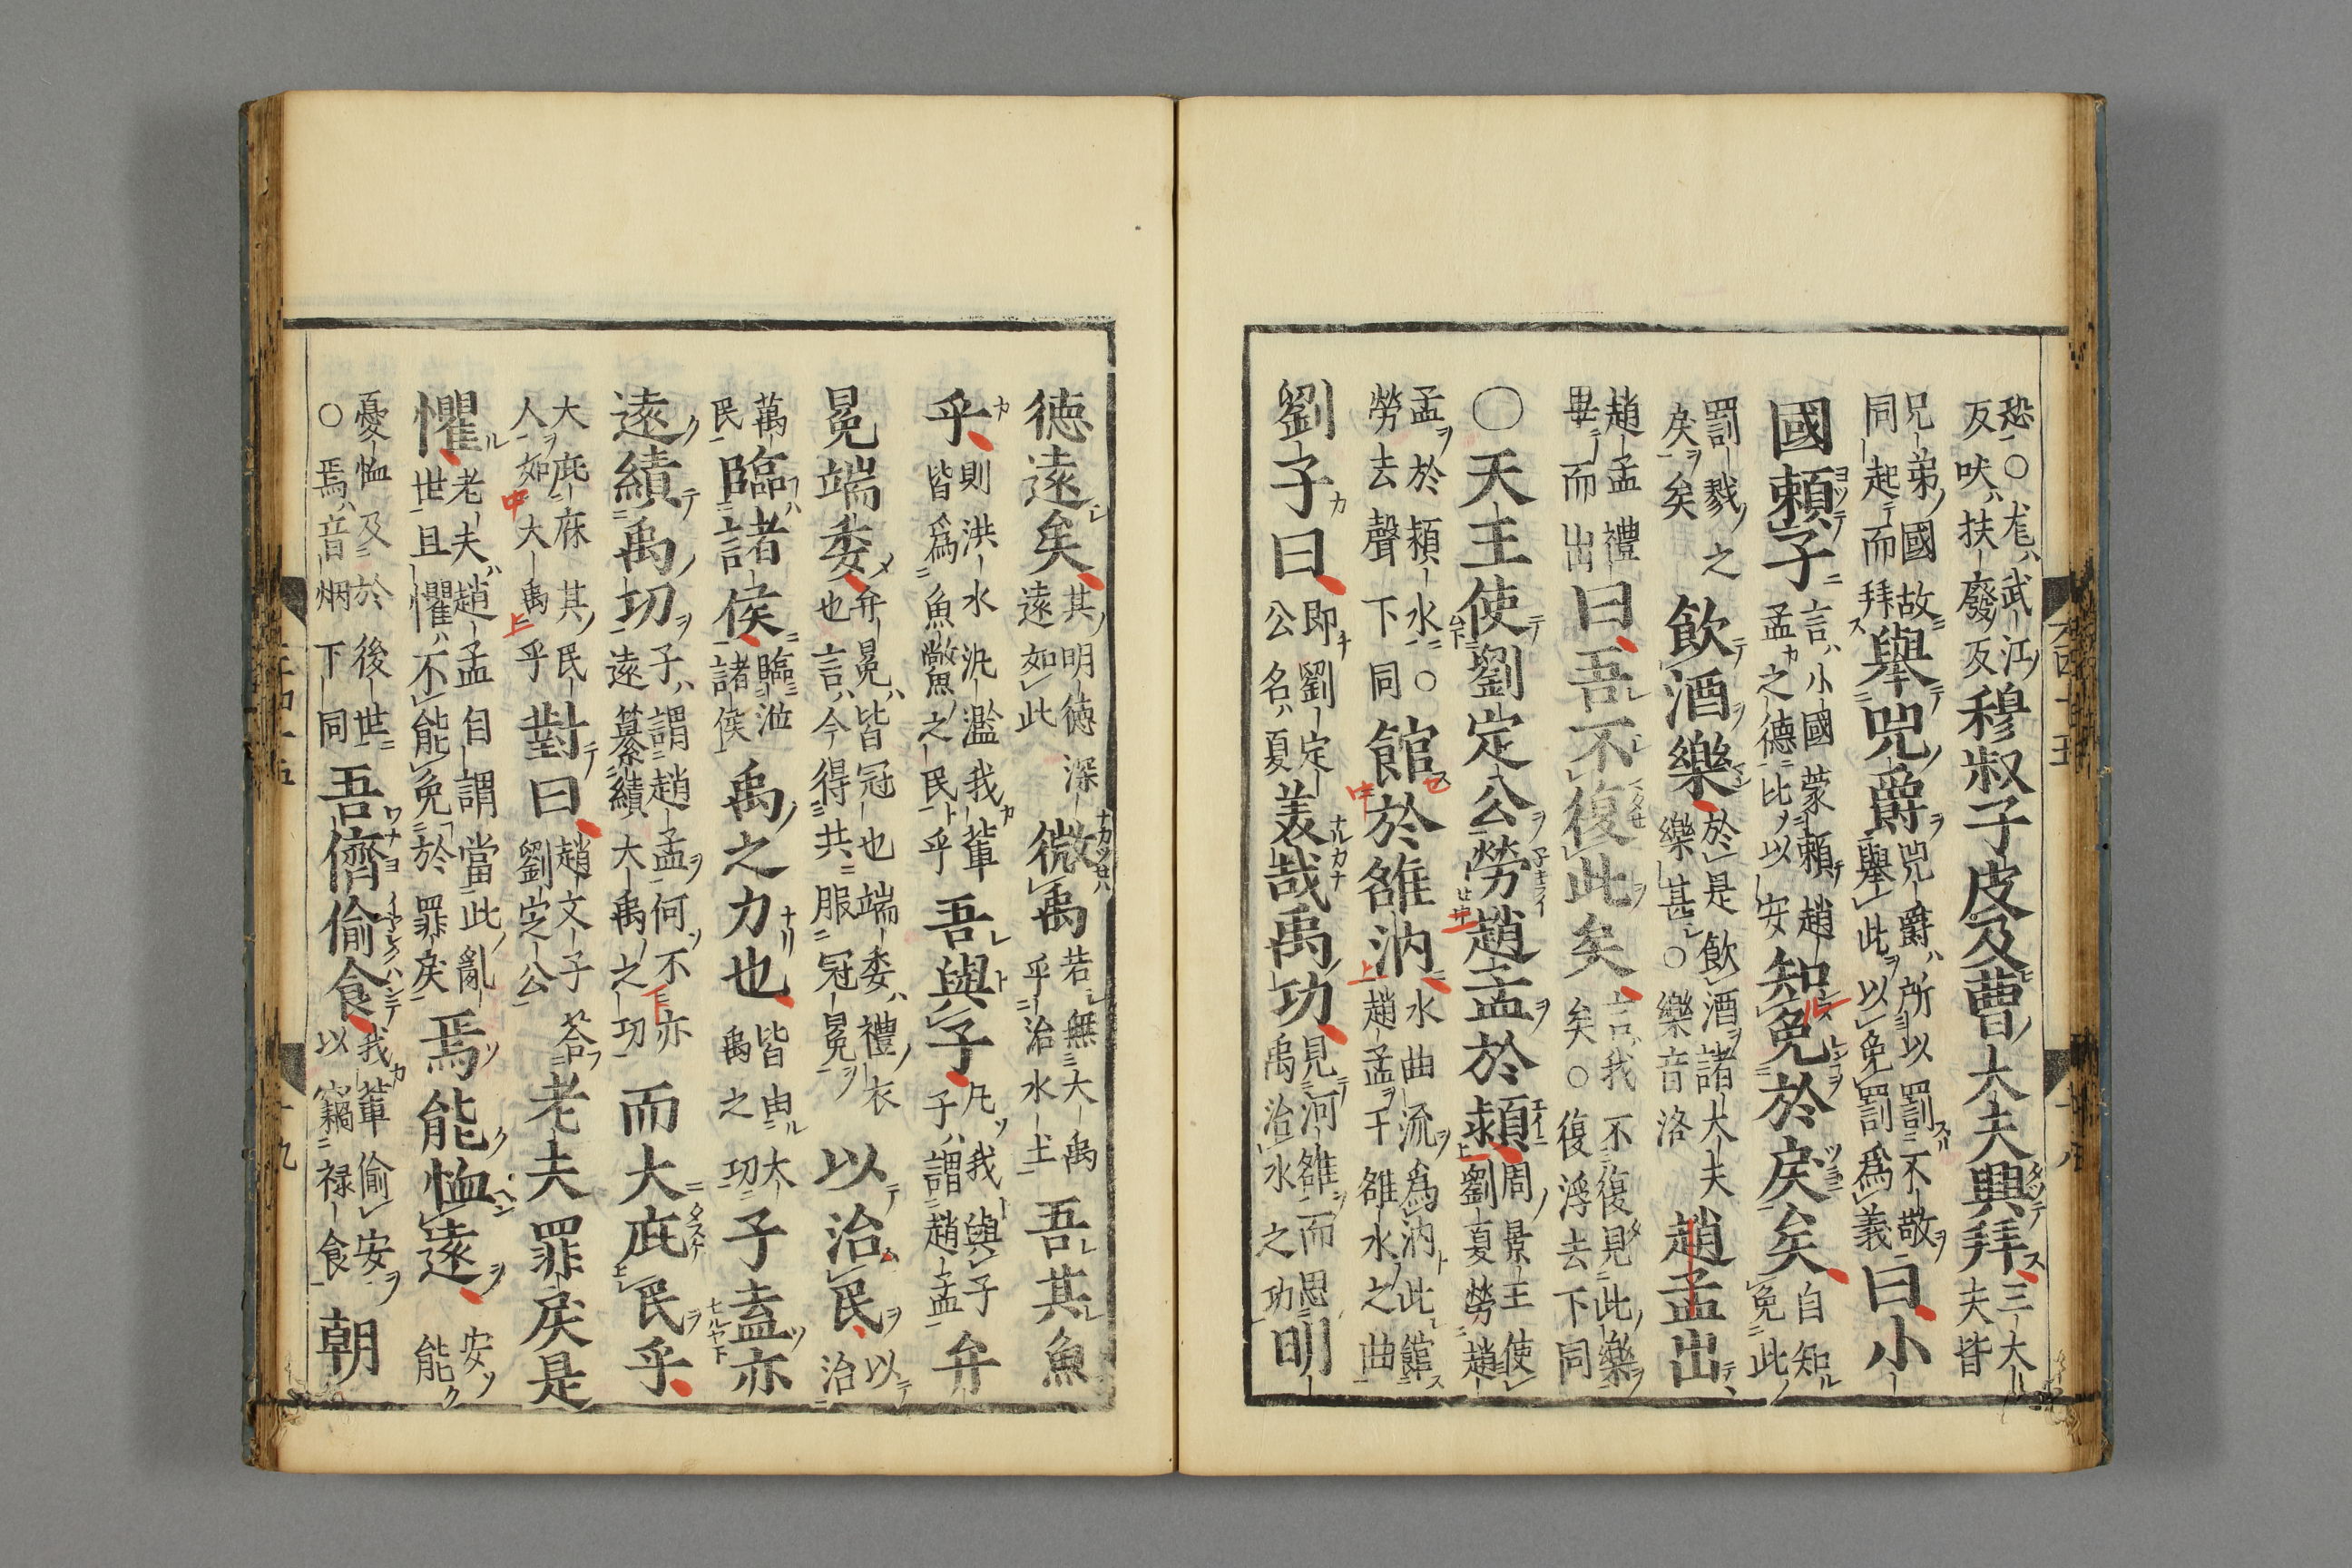 恐○尨武江反吠扶廢反穆叔子皮及曹大夫興拜三大夫皆
兄弟國故同起而拜舉兕爵兕爵所以罰不敬舉此以免罰爲義曰小
國賴子言小國蒙賴趙孟之德比以安知免於戾矣自知免此
罰戮之戾矣飲酒樂於是飲酒諸大夫樂甚○樂音洛趙孟出
趙孟禮畢而出曰吾不復此矣言我不復見此樂矣○復浮去下同
○天王使劉定公勞趙孟於潁周景王使劉夏勞趙
孟於潁水○勞去聲下同館於雒汭水曲流爲汭此館趙孟于雒水之曲
劉子曰即劉定公名夏美哉禹功見河雒而思禹治水之功明
德遠矣其明德深遠如此微禹若無大禹乎治水土吾其魚
乎則洪水汎濫我輩皆爲魚鼈之民乎吾與子凡我與子子謂趙孟弁
冕端委弁冕皆冠也端委禮衣也言今得共服冠冕以治民以治
萬民臨諸侯臨涖諸侯禹之力也皆由大禹之功子盍亦
遠績禹功子謂趙孟何不亦遠纂績大禹之功而大庇民乎
大庇庥其民人如大禹乎對曰趙文子荅劉定公老夫罪戾是
懼老夫趙孟自謂當此亂世且懼不能免於罪戾焉能恤遠安能
憂恤及於後世○焉音烟下同吾儕偷食我輩偷安以竊祿食朝